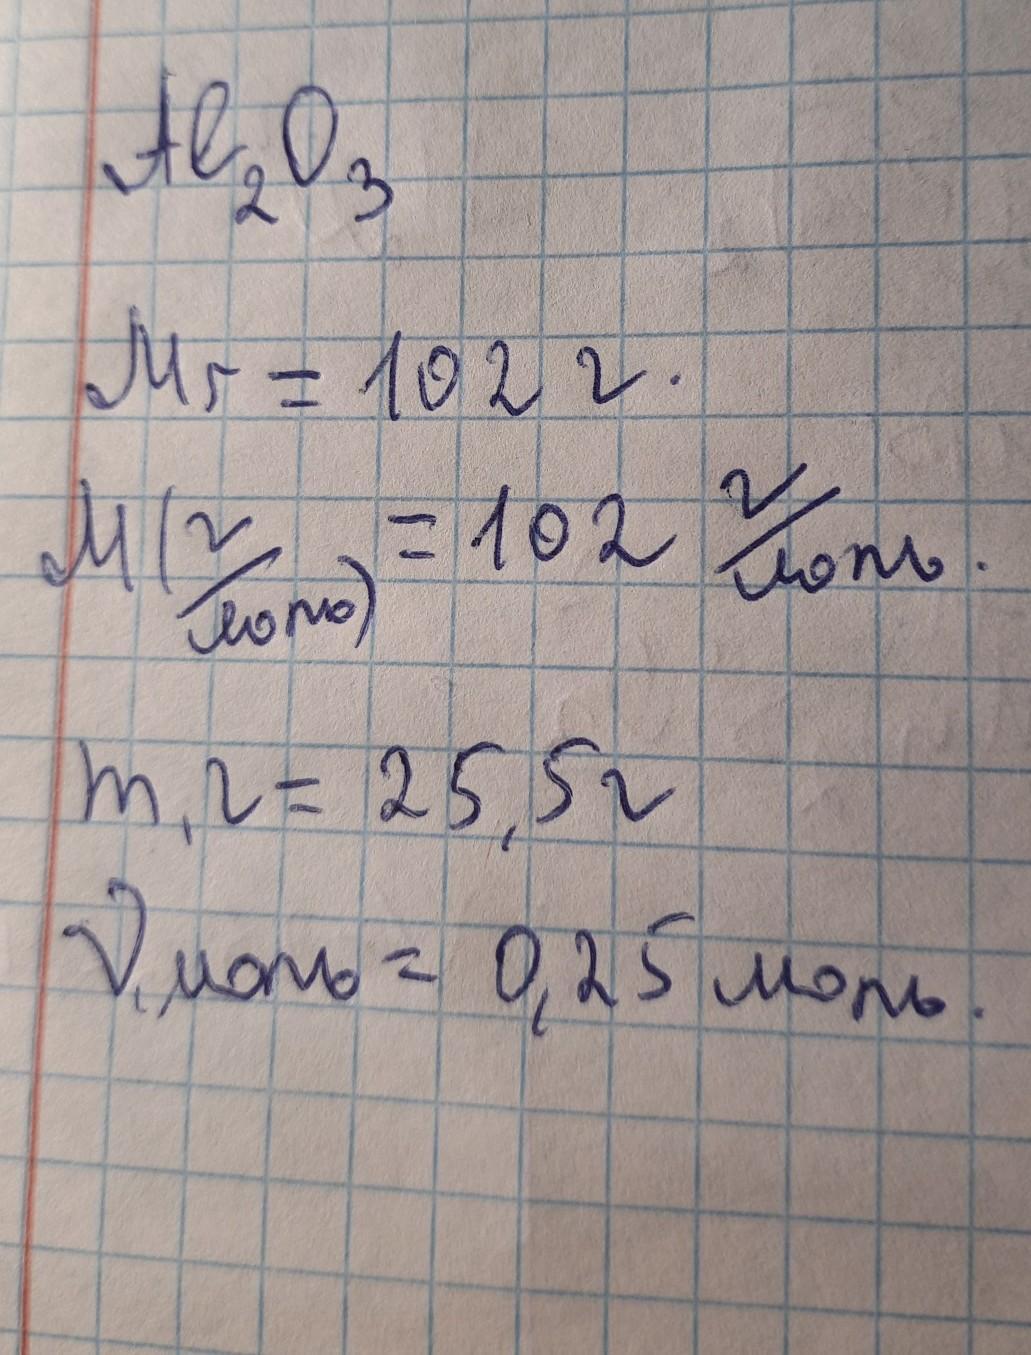 Al₂O₃
Mr = 102 г.
M(г/моль) = 102 г/моль.
m, г = 25,5г
ν, моль = 0,25 моль.